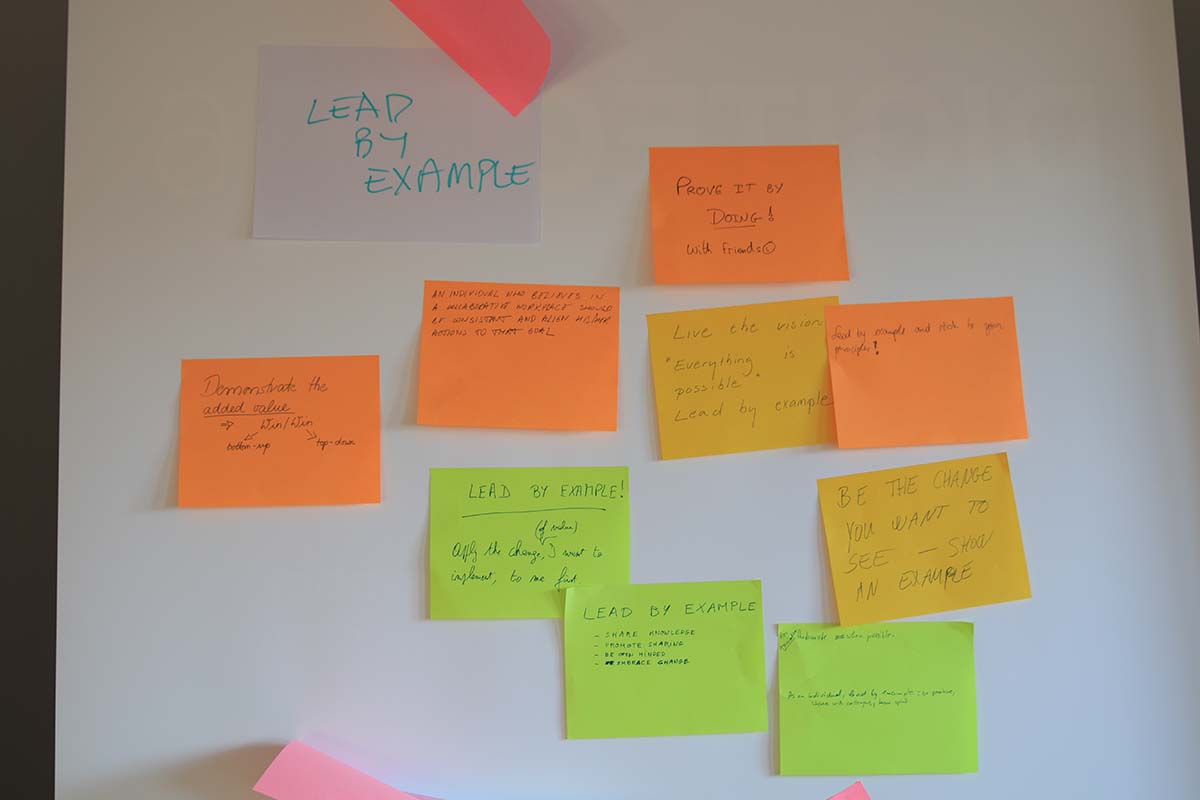 LEAD
BY
EXAMPLE
PROVE IT BY
DOING!
With Friends
AN INDIVIDUAL WHO BELIEVES IN
A COLLABORATIVE WORKPLACE SHOULD
BE CONSISTANT AND ALIGN HIS/HER
ACTIONS TO THAT GOAL
Live the vision
"Everything is
possible"
Lead by example
Lead by example and stick to your
principles!
Demonstrate the
added value
⇒ Win/Win
bottom-up top-down
LEAD BY EXAMPLE!
(of value)
Apply the change, I want to
implement, to me first.
BE THE CHANGE
YOU WANT TO
SEE — SHOW
AN EXAMPLE
LEAD BY EXAMPLE
- SHARE KNOWLEDGE
- PROMOTE SHARING
- BE OPEN MINDED
- EMBRACE CHANGE
possible.
As an individual, lead by example: be positive,
share with colleagues, team spirit